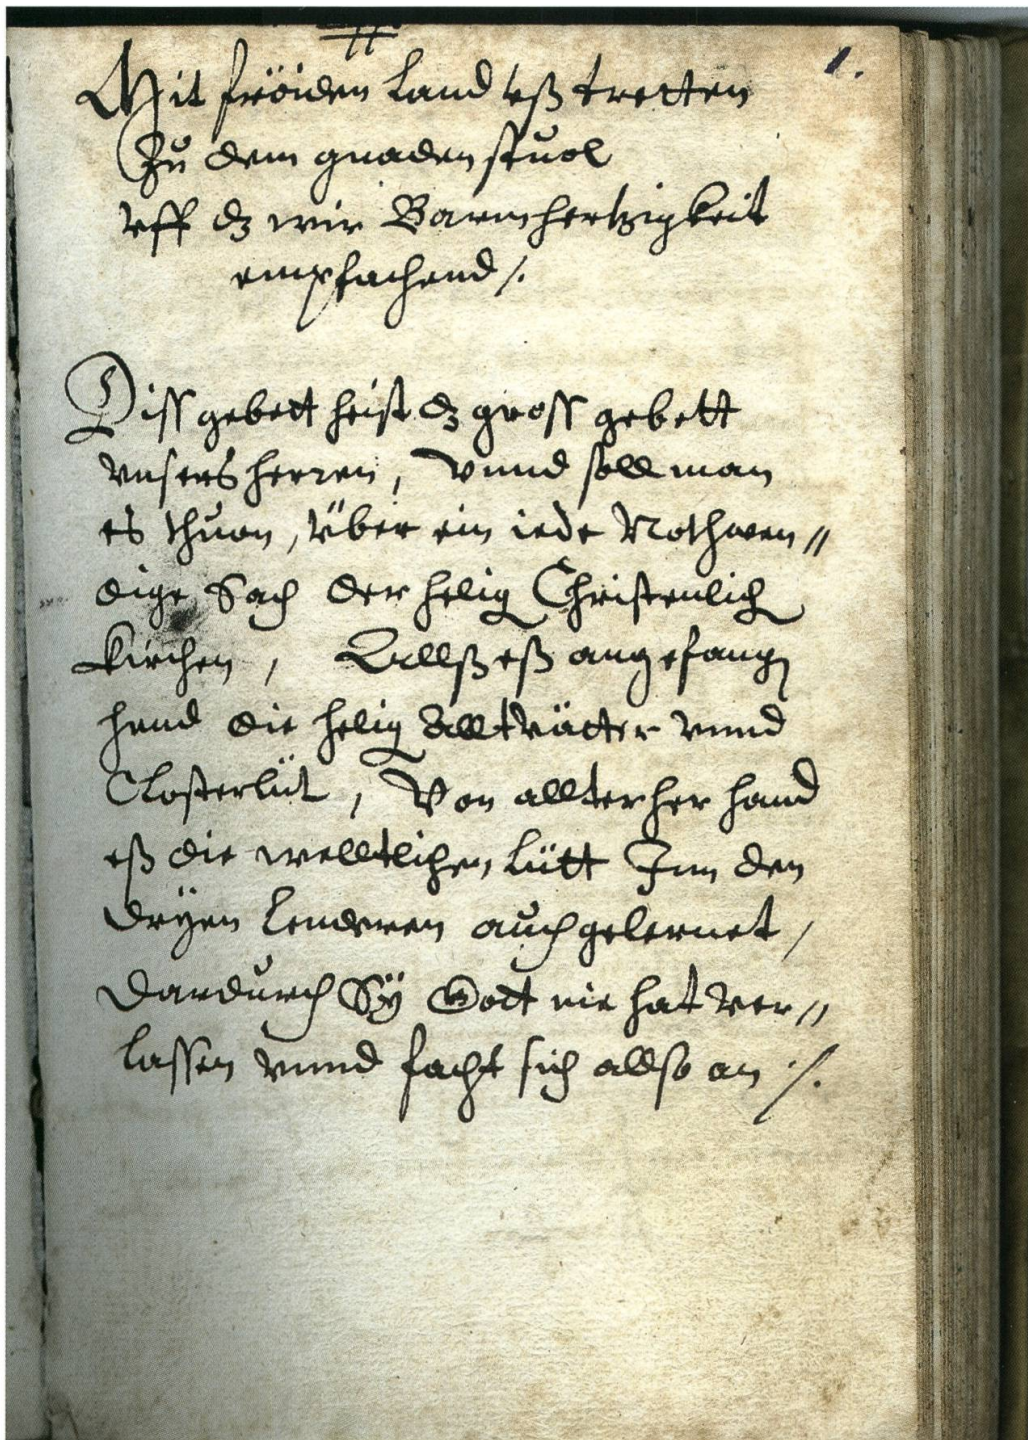 1.
Mit fröiden land vß tretten
Zu dem gnaden stuol
vff dz wir Barmhertzigkeit
empfachend /.
Diss gebett heist dz gross gebett
vnsers herren, Vnnd soll man
es thuon, über ein iede Nothwen //
dige Sach der helig Christenlich
Kirchen, Allß eß angefang
hend die helig Alltvätter vnnd
Closterlüt, Von allterher hand
eß die welltlichen lütt Jnn den
dryen lenderen auch gelernet /
Dardurch Sÿ Gott nie hat ver //
lassen vnnd facht sich allso an ·/.